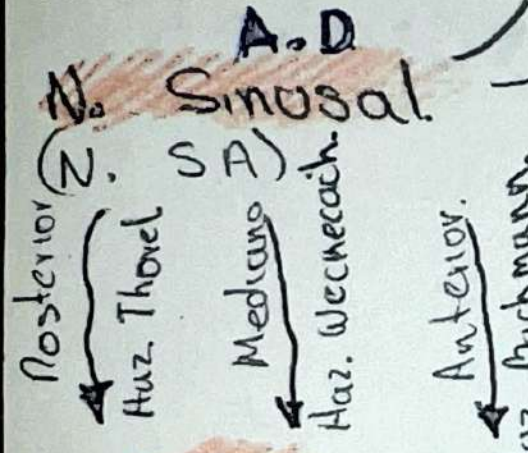 A.D
N. Sinusal
(N. SA)
Posterior
Haz. Thorel
Mediano
Haz. Wecnecach.
Anterior.